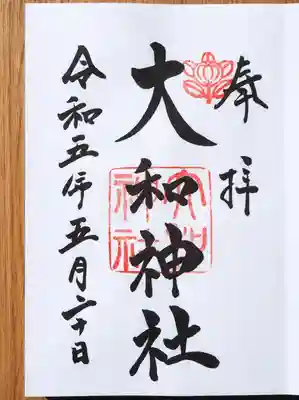 奉拝
大和神社
大和神社
令和五年五月二十日